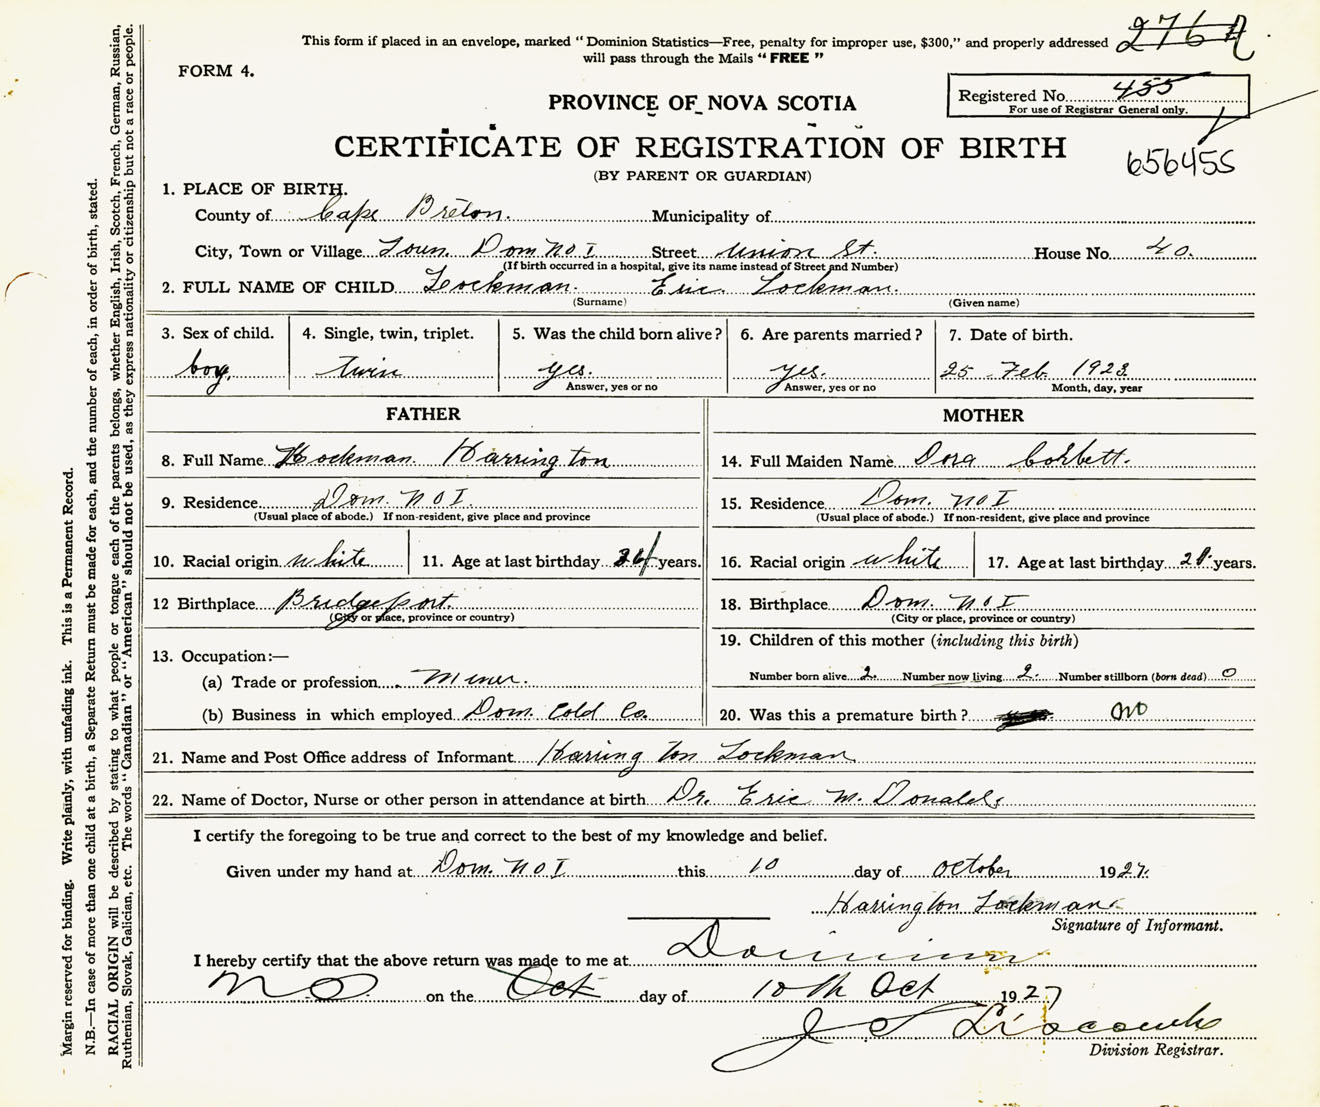 This form if placed in an envelope, marked "Dominion Statistics—Free, penalty for improper use, $300," and properly addressed
will pass through the Mails "FREE"
276A
FORM 4.
Registered No. 455
For use of Registrar General only.
PROVINCE OF NOVA SCOTIA
CERTIFICATE OF REGISTRATION OF BIRTH
(BY PARENT OR GUARDIAN)
656455
1. PLACE OF BIRTH.
County of Cape Breton. Municipality of
City, Town or Village Town Dom No I Street Union St. House No. 40.
(If birth occurred in a hospital, give its name instead of Street and Number)
2. FULL NAME OF CHILD Lockman. Eric Lockman.
(Surname) (Given name)
3. Sex of child. 4. Single, twin, triplet. 5. Was the child born alive? 6. Are parents married? 7. Date of birth.
boy, twin yes. yes. 25 Feb. 1923.
Answer, yes or no Answer, yes or no Month, day, year
FATHER MOTHER
8. Full Name Lockman Harrington 14. Full Maiden Name Dora Corbett.
9. Residence Dom. No I 15. Residence Dom. No I
(Usual place of abode.) If non-resident, give place and province (Usual place of abode.) If non-resident, give place and province
10. Racial origin white 11. Age at last birthday years. 16. Racial origin white 17. Age at last birthday years.
12 Birthplace Bridgeport. 18. Birthplace Dom. No I
(City or place, province or country) (City or place, province or country)
19. Children of this mother (including this birth)
13. Occupation:—
(a) Trade or profession Miner. Number born alive 2. Number now living 2. Number stillborn (born dead) 0
(b) Business in which employed Dom. Cold Co. 20. Was this a premature birth? no
21. Name and Post Office address of Informant Harrington Lockman
22. Name of Doctor, Nurse or other person in attendance at birth Dr. Eric M. Donalds
I certify the foregoing to be true and correct to the best of my knowledge and belief.
Given under my hand at Dom. No I this 10 day of October 1927.
Harrington Lockman
Signature of Informant.
I hereby certify that the above return was made to me at Dominion
No on the Oct day of 10th Oct 1927
J
Division Registrar.
Margin reserved for binding. Write plainly, with unfading ink. This is a Permanent Record.
N.B.—In case of more than one child at a birth, a Separate Return must be made for each, and the number of each, in order of birth, stated.
RACIAL ORIGIN will be described by stating to what people or tongue each of the parents belongs, whether English, Irish, Scotch, French, German, Russian,
Ruthenian, Slovak, Galician, etc. The words "Canadian" or "American" should not be used, as they express nationality or citizenship but not a race or people.